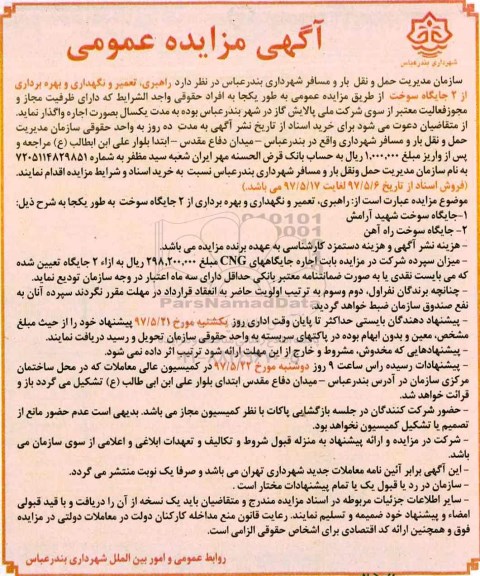 آگهی مزایده عمومی
شهرداری بندرعباس
سازمان مدیریت حمل و نقل بار و مسافر شهرداری بندرعباس در نظر دارد راهبری، تعمیر و نگهداری و بهره برداری
از ۲ جایگاه سوخت از طریق مزایده عمومی به طور یکجا به افراد حقوقی واجد الشرایط که دارای ظرفیت مجاز و
مجوزفعالیت معتبر از سوی شرکت ملی پالایش گاز در شهر بندرعباس بوده به مدت یکسال بصورت اجاره واگذار نماید.
از متقاضیان دعوت می شود برای خرید اسناد از تاریخ نشر آگهی به مدت ده روز به واحد حقوقی سازمان مدیریت
حمل و نقل بار و مسافر شهرداری واقع در بندرعباس -میدان دفاع مقدس - ابتدا بلوار علی ابن ابیطالب (ع) مراجعه و
پس از واریز مبلغ ۱.۰۰۰.۰۰۰ ریال به حساب بانک قرض الحسنه مهر ایران شعبه سید مظفر به شماره ۷۲۰۵۱۱۴۸۲۹۸۵۱
به نام سازمان مدیریت حمل ونقل بار و مسافر شهرداری بندرعباس نسبت به خرید اسناد و شرایط مزایده اقدام نمایند.
(فروش اسناد از تاریخ ۹۷/۵/۶ لغایت ۹۷/۵/۱۷ می باشد.)
موضوع مزایده عبارت است از: راهبری، تعمیر و نگهداری و بهره برداری از ۲ جایگاه سوخت به طور یکجا به شرح ذیل:
۱-جایگاه سوخت شهید آرامش
۲- جایگاه سوخت راه آهن
- هزینه نشر آگهی و هزینه دستمزد کارشناسی به عهده برنده مزایده می باشد.
- میزان سپرده شرکت در مزایده بابت اجاره جایگاههای CNG مبلغ ۲۹۸.۲۰۰.۰۰۰ ریال به ازاء ۲ جایگاه تعیین شده
که می بایست نقدی یا به صورت ضمانتنامه معتبر بانکی حداقل دارای سه ماه اعتبار در وجه سازمان تودیع نماید.
- چنانچه برندگان نفراول، دوم وسوم به ترتیب اولویت حاضر به انعقاد قرارداد در مهلت مقرر نگردند سپرده آنان به
نفع صندوق سازمان ضبط خواهد گردید.
- پیشنهاد دهندگان بایستی حداکثر تا پایان وقت اداری روز یکشنبه مورخ ۹۷/۵/۲۱ پیشنهاد خود را از حیث مبلغ
مشخص، معین و بدون ابهام بوده در پاکتهای سربسته به واحد حقوقی سازمان تحویل و رسید دریافت نمایند.
- پیشنهادهایی که مخدوش، مشروط و خارج از این مهلت ارائه شود ترتیب اثر داده نمی شود.
- پیشنهادات رسیده راس ساعت ۹ روز دوشنبه مورخ ۹۷/۵/۲۲ در کمیسیون عالی معاملات که در محل ساختمان
مرکزی سازمان در آدرس بندرعباس -میدان دفاع مقدس ابتدای بلوار علی ابن ابی طالب (ع) تشکیل می گردد باز و
قرائت خواهد شد.
- حضور شرکت کنندگان در جلسه بازگشایی پاکات با نظر کمیسیون مجاز می باشد. بدیهی است عدم حضور مانع از
تصمیم یا تشکیل کمیسیون نخواهد بود.
- شرکت در مزایده و ارائه پیشنهاد به منزله قبول شروط و تکالیف و تعهدات ابلاغی و اعلامی از سوی سازمان می
باشد.
- این آگهی برابر آئین نامه معاملات جدید شهرداری تهران می باشد و صرفا یک نوبت منتشر می گردد.
- سازمان در رد یا قبول یک یا تمام پیشنهادات مختار است .
- سایر اطلاعات جزئیات مربوطه در اسناد مزایده مندرج و متقاضیان باید یک نسخه از آن را دریافت و با قید قبولی
امضاء و پیشنهاد خود ضمیمه و تسلیم نمایند. رعایت قانون منع مداخله کارکنان دولت در معاملات دولتی در مزایده
فوق و همچنین ارائه کد اقتصادی برای اشخاص حقوقی الزامی است.
روابط عمومی و امور بین الملل شهرداری بندرعباس
ParsNamadData